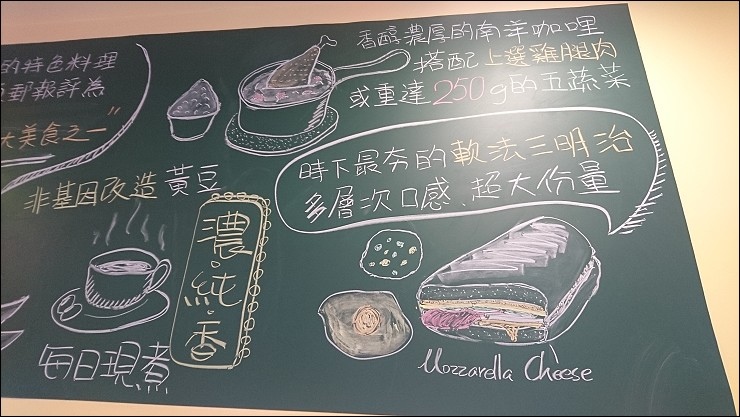 的特色料理
郵報評為
大美食之一"
香醇濃厚的南洋咖哩
搭配上選雞腿肉
或重達250g的五蔬菜
時下最夯的軟法三明治
多層次口感、超大份量
非基因改造黃豆
濃·純·香
每日現煮
Mozzarella Cheese